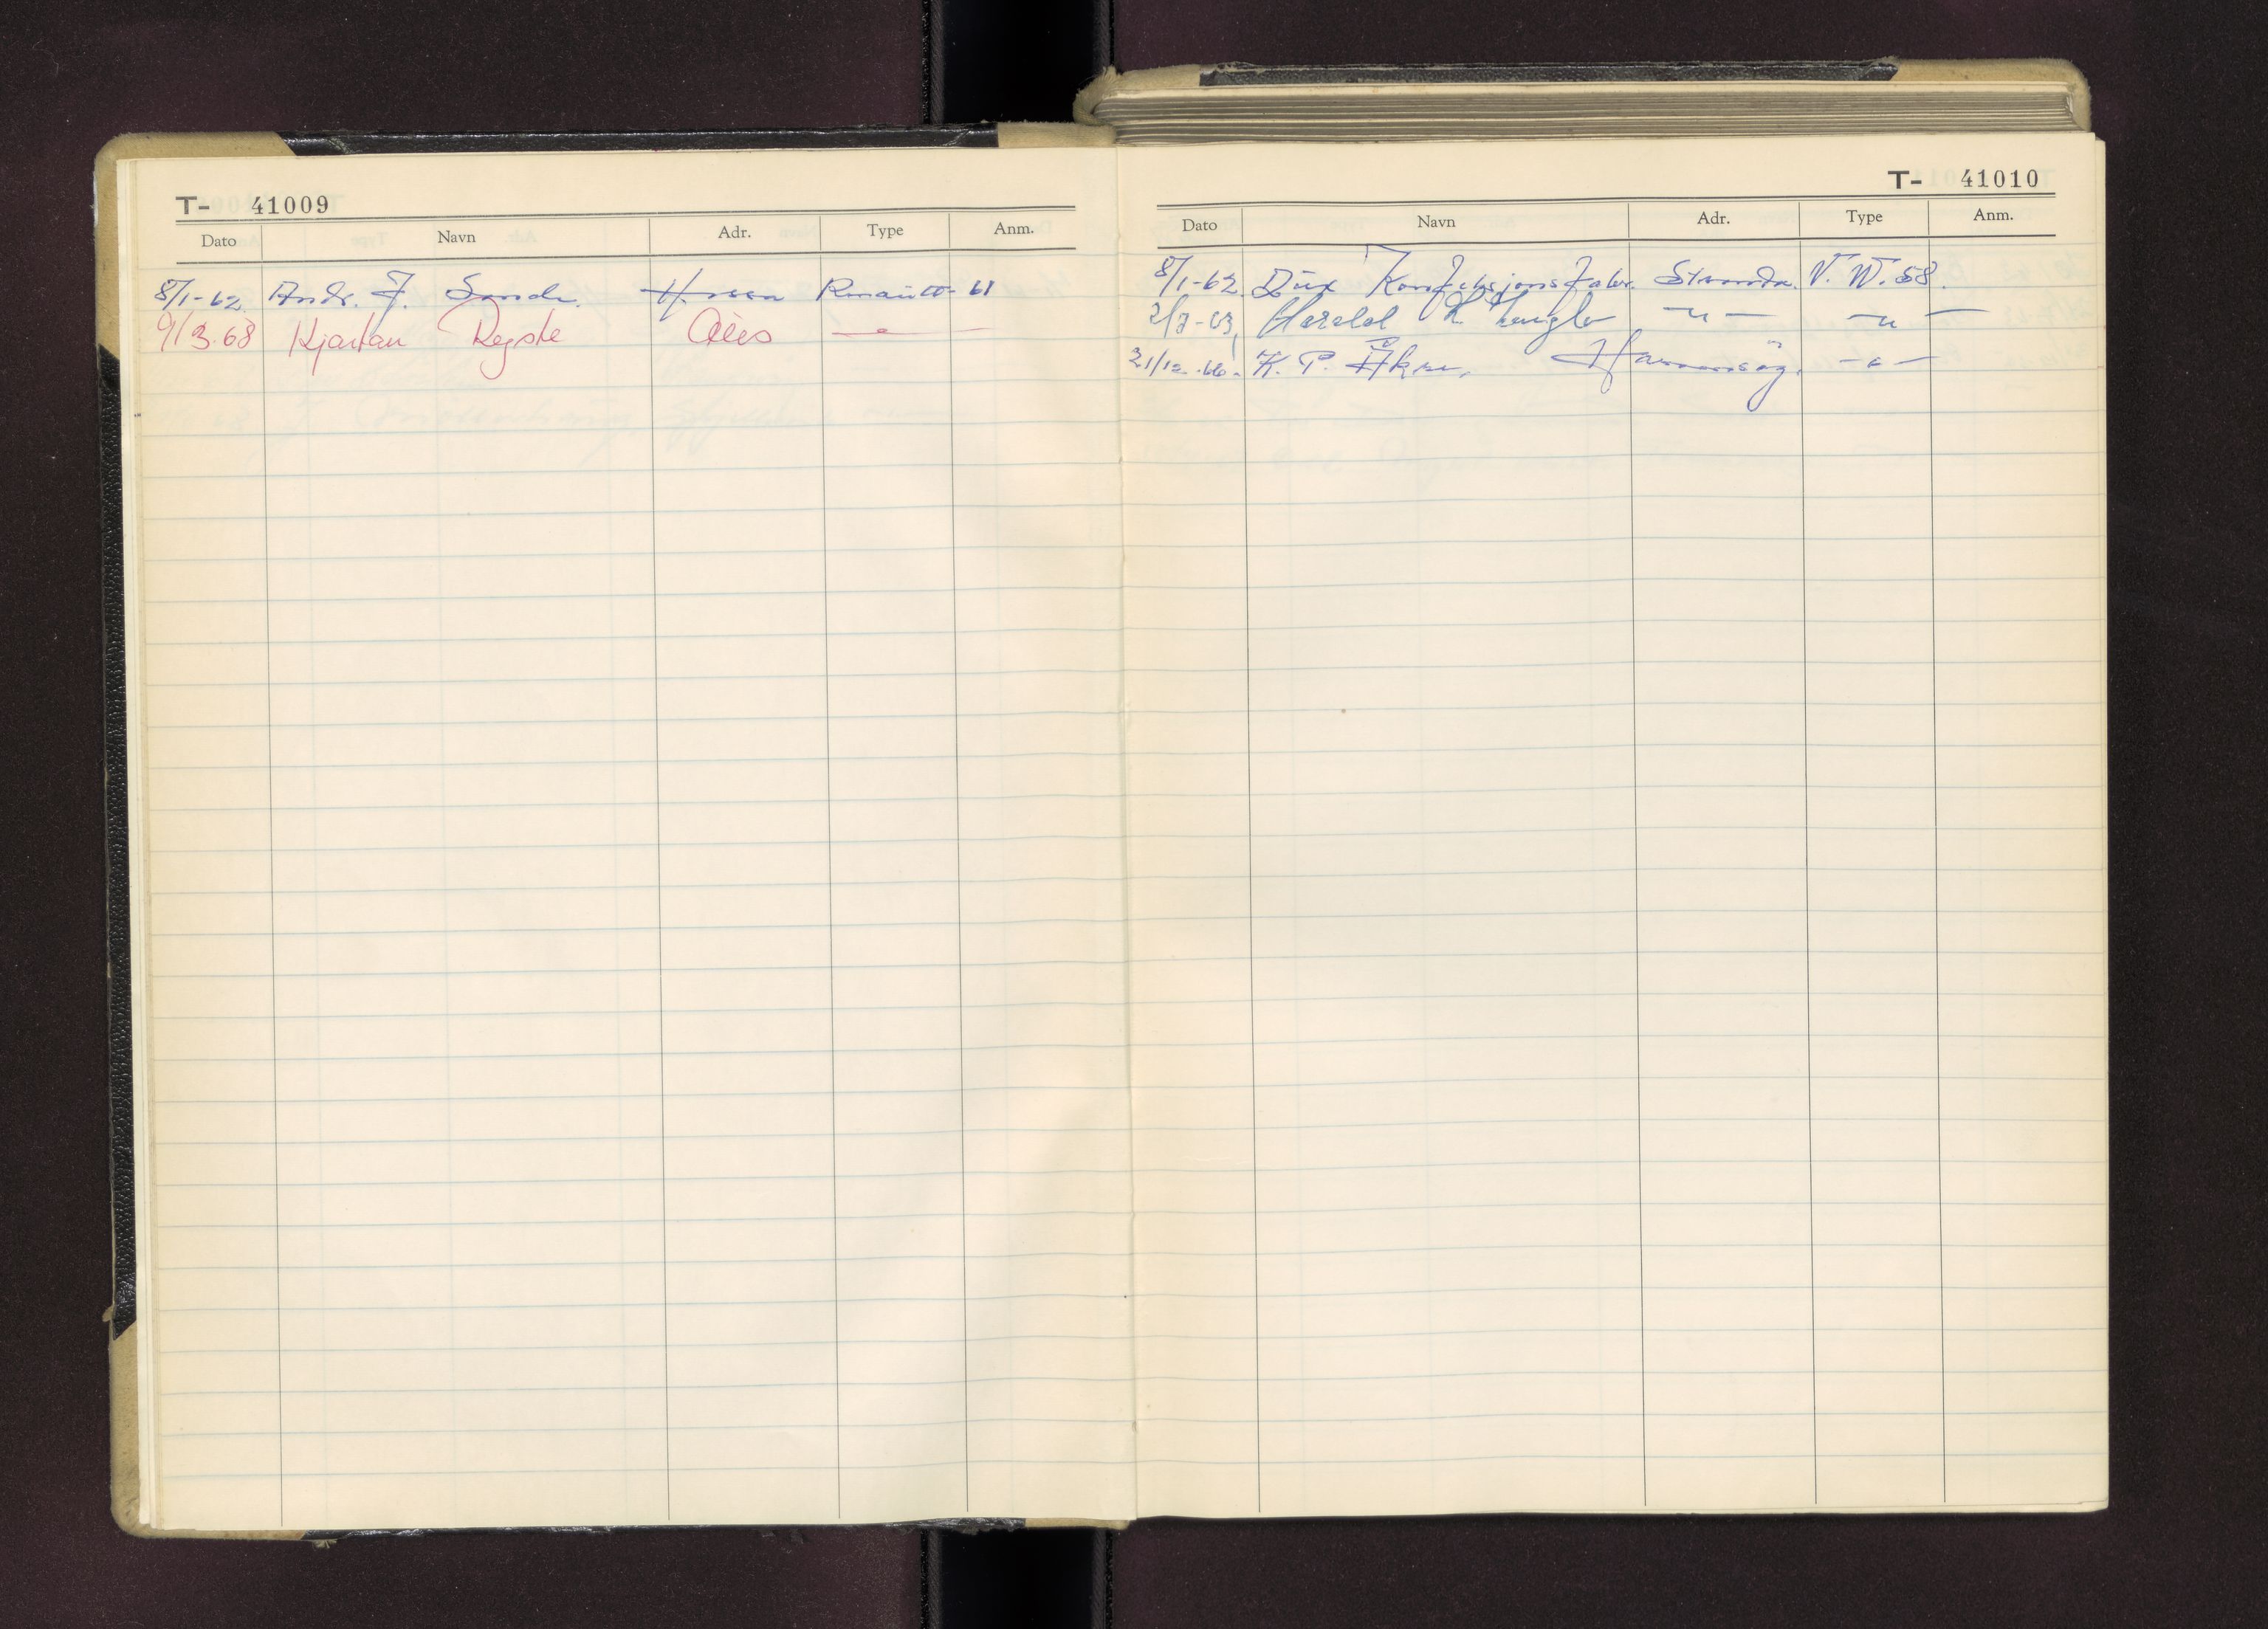 T- 41009
Dato Navn Adr. Type Anm.
8/1-62. Andr. J. Sande. Renault- 61
9/3.68 Kjartan Røyste
T- 41010
Dato Navn Adr. Type Anm.
8/1-62. Dux Konfeksjonsfabr. Stranda. V.W.58.
2/7-63 Harald — " — — " —
21/12.66. K. P. Åkre. — " —